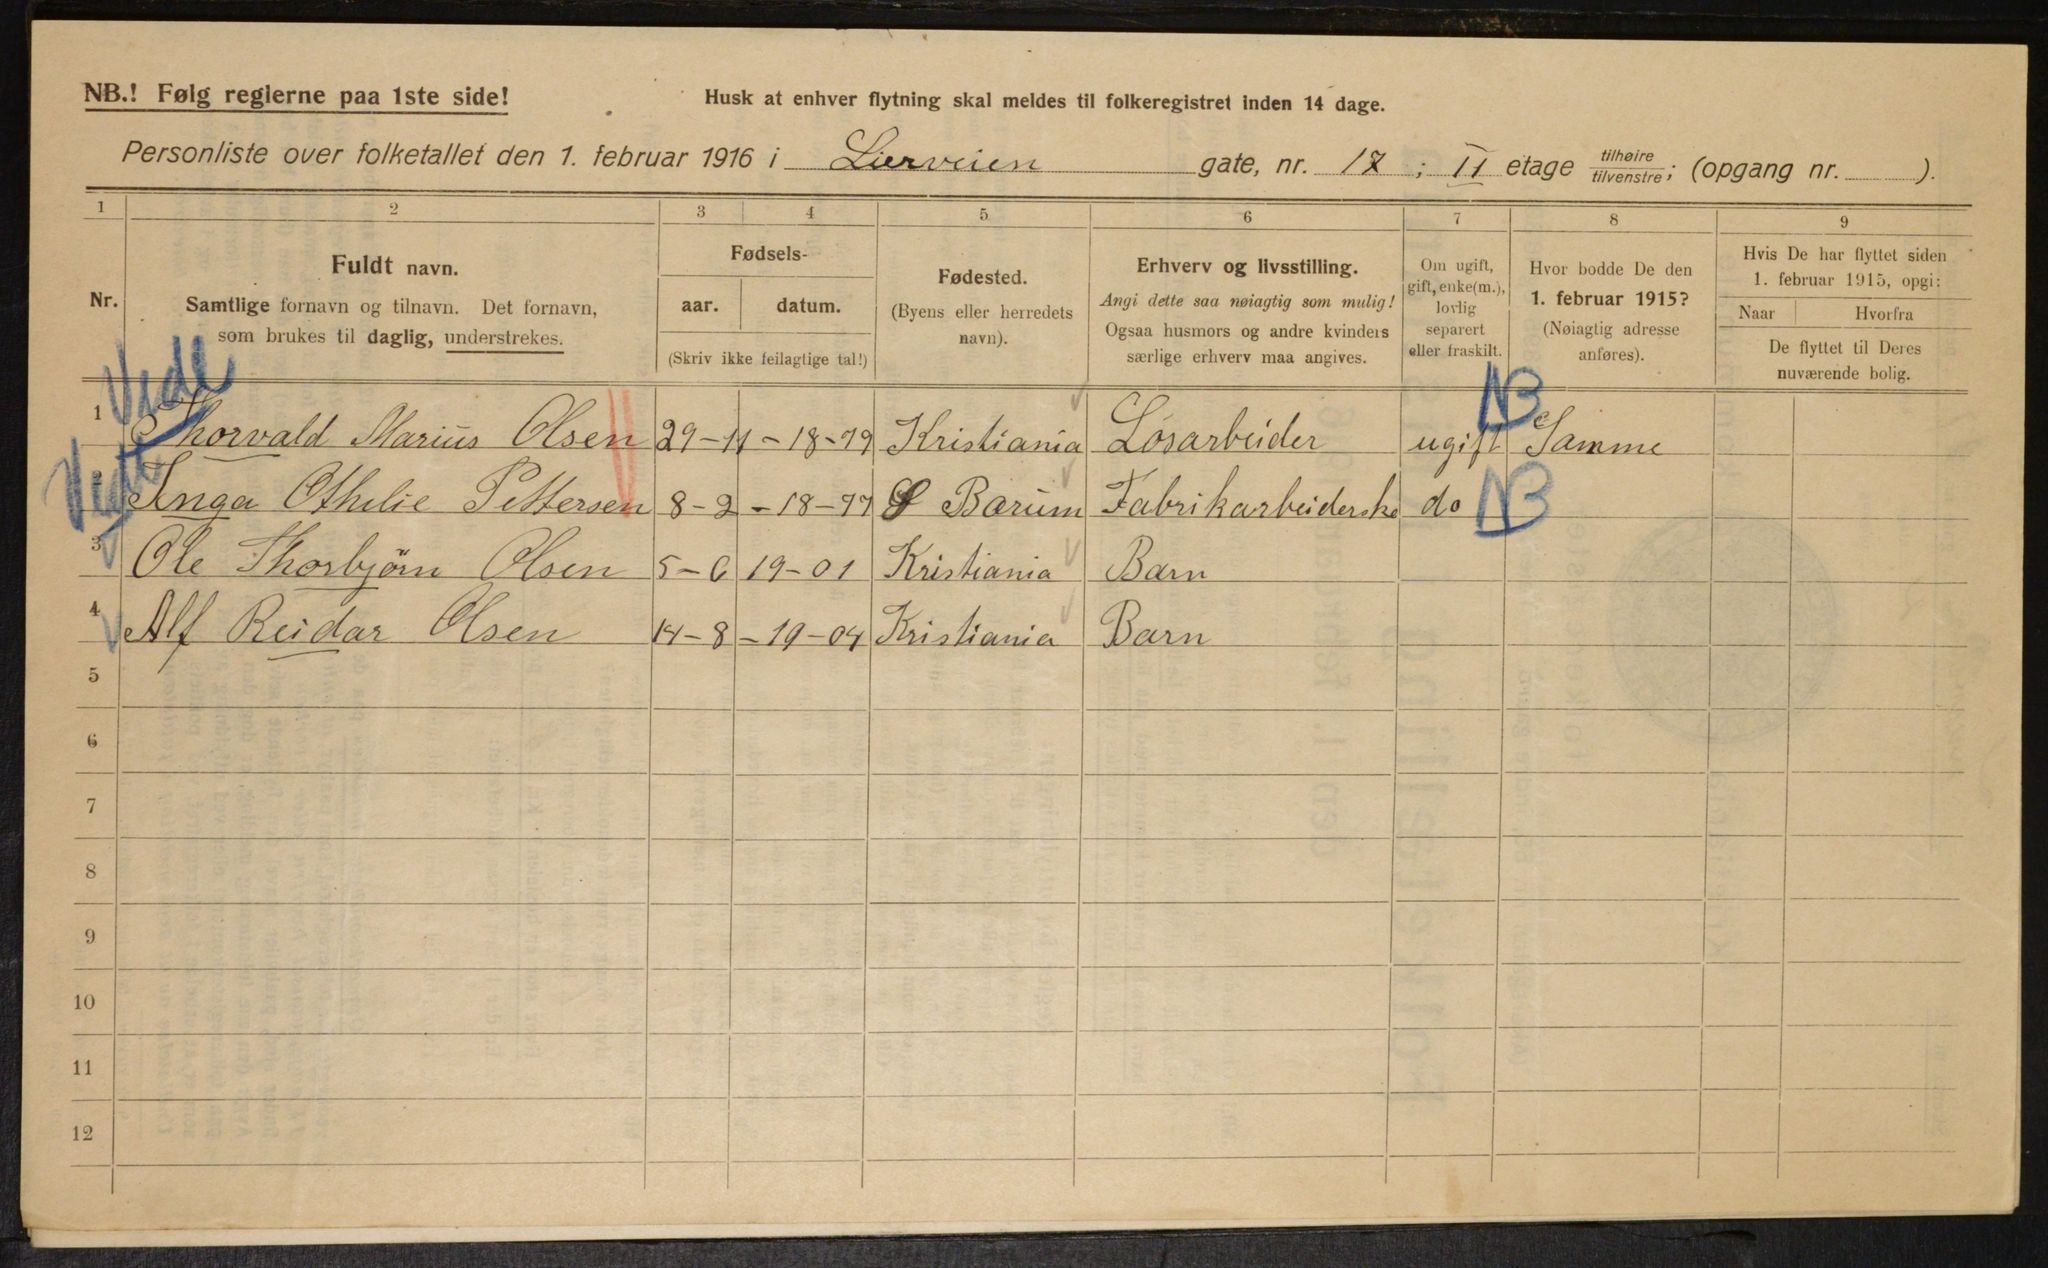 NB.! Følg reglerne paa 1ste side!
Husk at enhver flytning skal meldes til folkeregistret inden 14 dage.
Personliste over folketallet den 1. februar 1916 i Lierveien gate, nr. 17 ; II etage tilhøire tilvenstre; (opgang nr. ).
1 2 3 4 5 6 7 8 9
Nr.
Fuldt navn.
Samtlige fornavn og tilnavn. Det fornavn,
som brukes til daglig, understrekes.
Fødsels-
aar. datum.
(Skriv ikke feilagtige tal!)
Fødested.
(Byens eller herredets
navn).
Erhverv og livsstilling.
Angi dette saa nøiagtig som mulig!
Ogsaa husmors og andre kvinders
særlige erhverv maa angives.
Om ugift,
gift, enke(m.),
lovlig
separert
eller fraskilt.
Hvor bodde De den
1. februar 1915?
(Nøiagtig adresse
anføres).
Hvis De har flyttet siden
1. februar 1915, opgi:
Naar Hvorfra
De flyttet til Deres
nuværende bolig.
Vide NB
1 Thorvald Marius Olsen 29-11-18-79 Kristiania Løsarbeider ugift Samme
2 Inga Othilie Pettersen 8-2-18-77 Bærum Fabrikarbeiderske do NB
3 Ole Thorbjörn Olsen 5-6 19-01 Kristiania Barn
4 Alf Reidar Olsen 14-8-19-04 Kristiania Barn
5
6
7
8
9
10
11
12